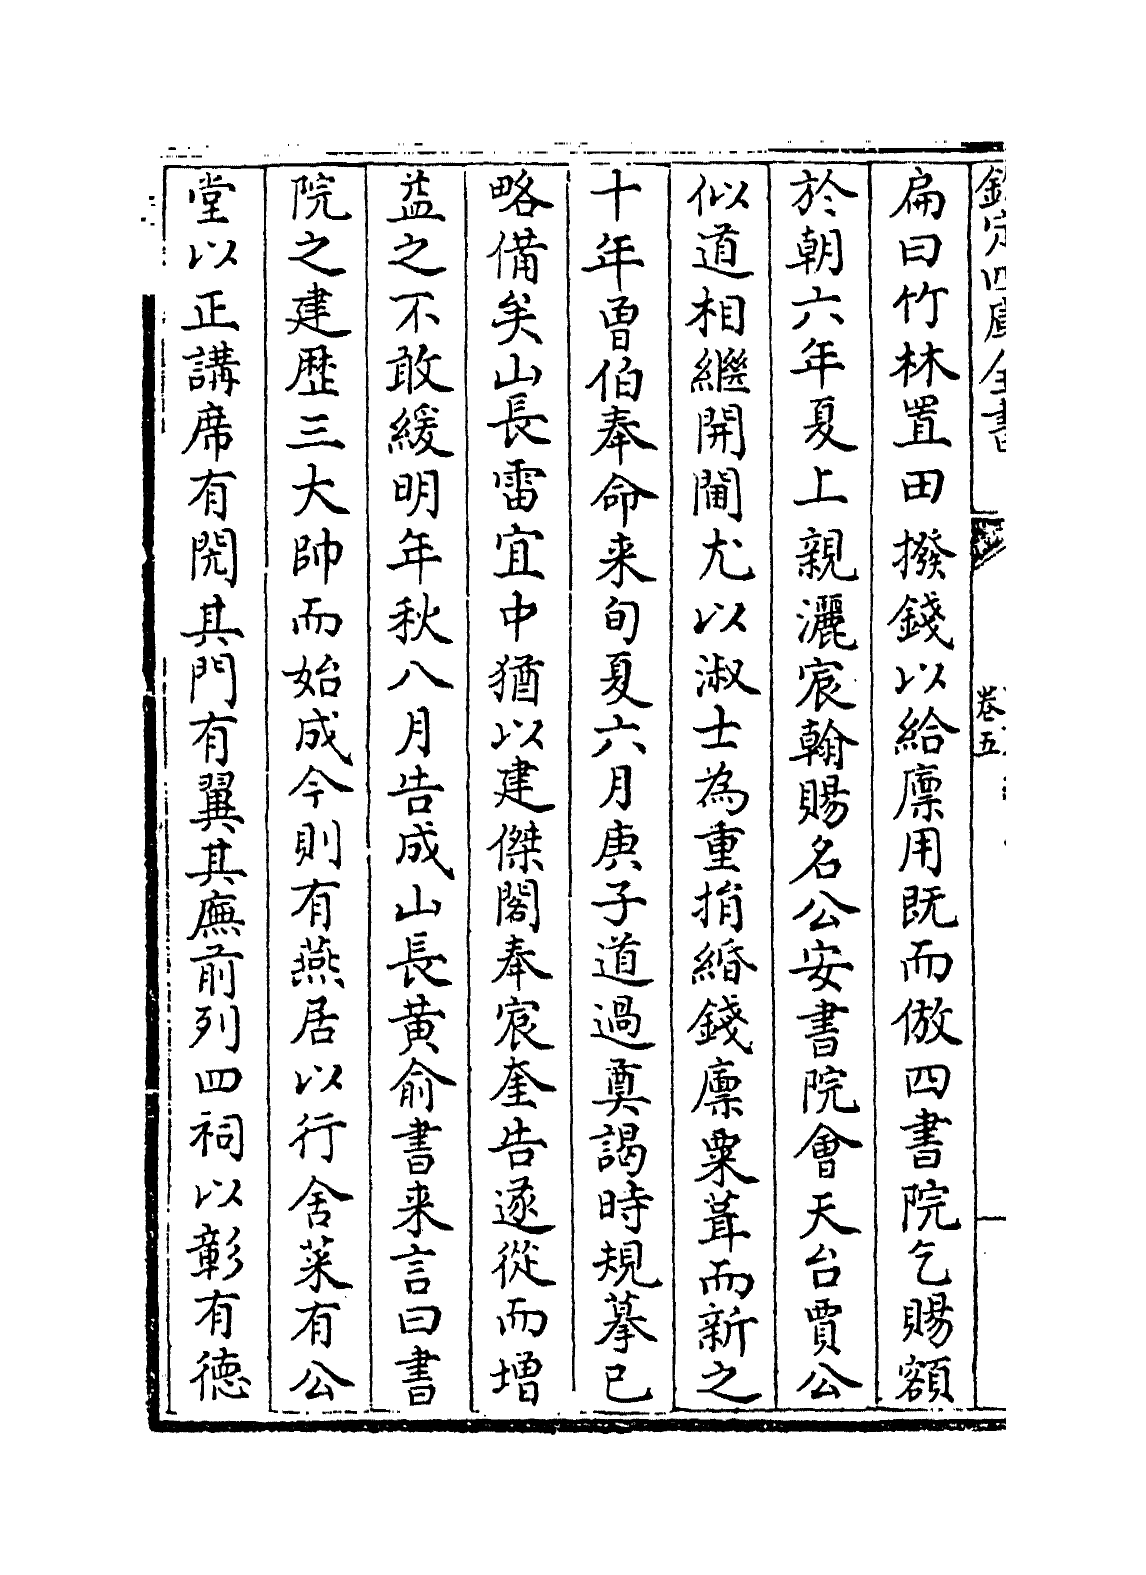 欽定四庫全書
卷五
扁曰竹林置田撥錢以給廪用既而倣四書院乞賜額
於朝六年夏上親灑宸翰賜名公安書院會天台賈公
似道相繼開閫尤以淑士為重捐緡錢廪粟葺而新之
十年曾伯奉命来旬夏六月庚子道過奠謁時規摹已
略備矣山長雷宜中猶以建傑閣奉宸奎告遂從而增
益之不敢緩明年秋八月告成山長黄俞書来言曰書
院之建歴三大帥而始成今則有燕居以行舍菜有公
堂以正講席有閌其門有翼其廡前列四祠以彰有德